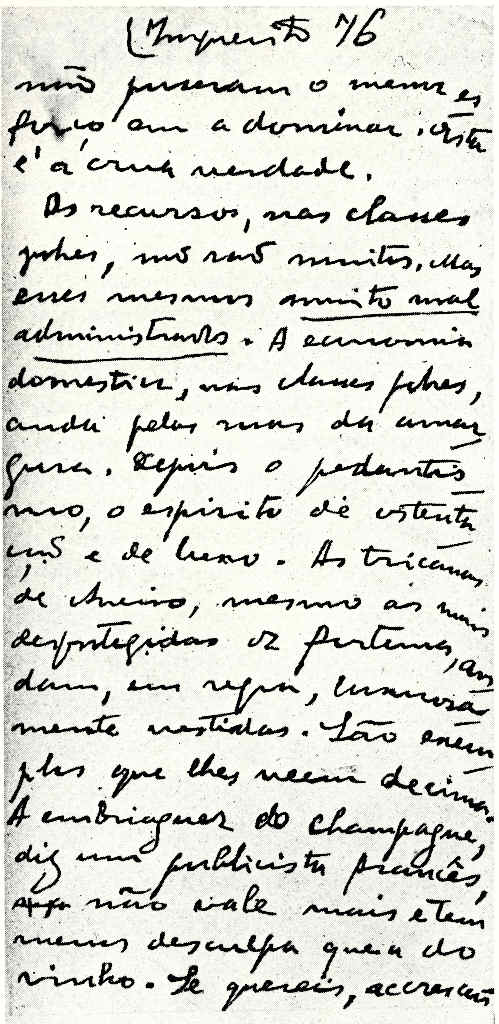 (Imprevisto 76
não puseram o menor es
forço em a dominar. Esta
é a crua verdade.
Os recursos, nas classes
pobres, não são muitos. Mas
esses mesmos muito mal
administrados. A economia
domestica, nas classes pobres,
anda pelas ruas da amar
gura. Depois o pedantis
mo, o espirito de ostenta
ção e de luxo. As tricanas
de Aveiro, mesmo as mais
desprotegidas de fortuna, an
dam, em regra, luxuosa
mente vestidas. São exem
plos que lhes veem de cima.
A embriaguez do champagne,
diz um publicista francês,
não vale mais e tem
menos desculpa que a do
vinho. Se quereis, accrescen